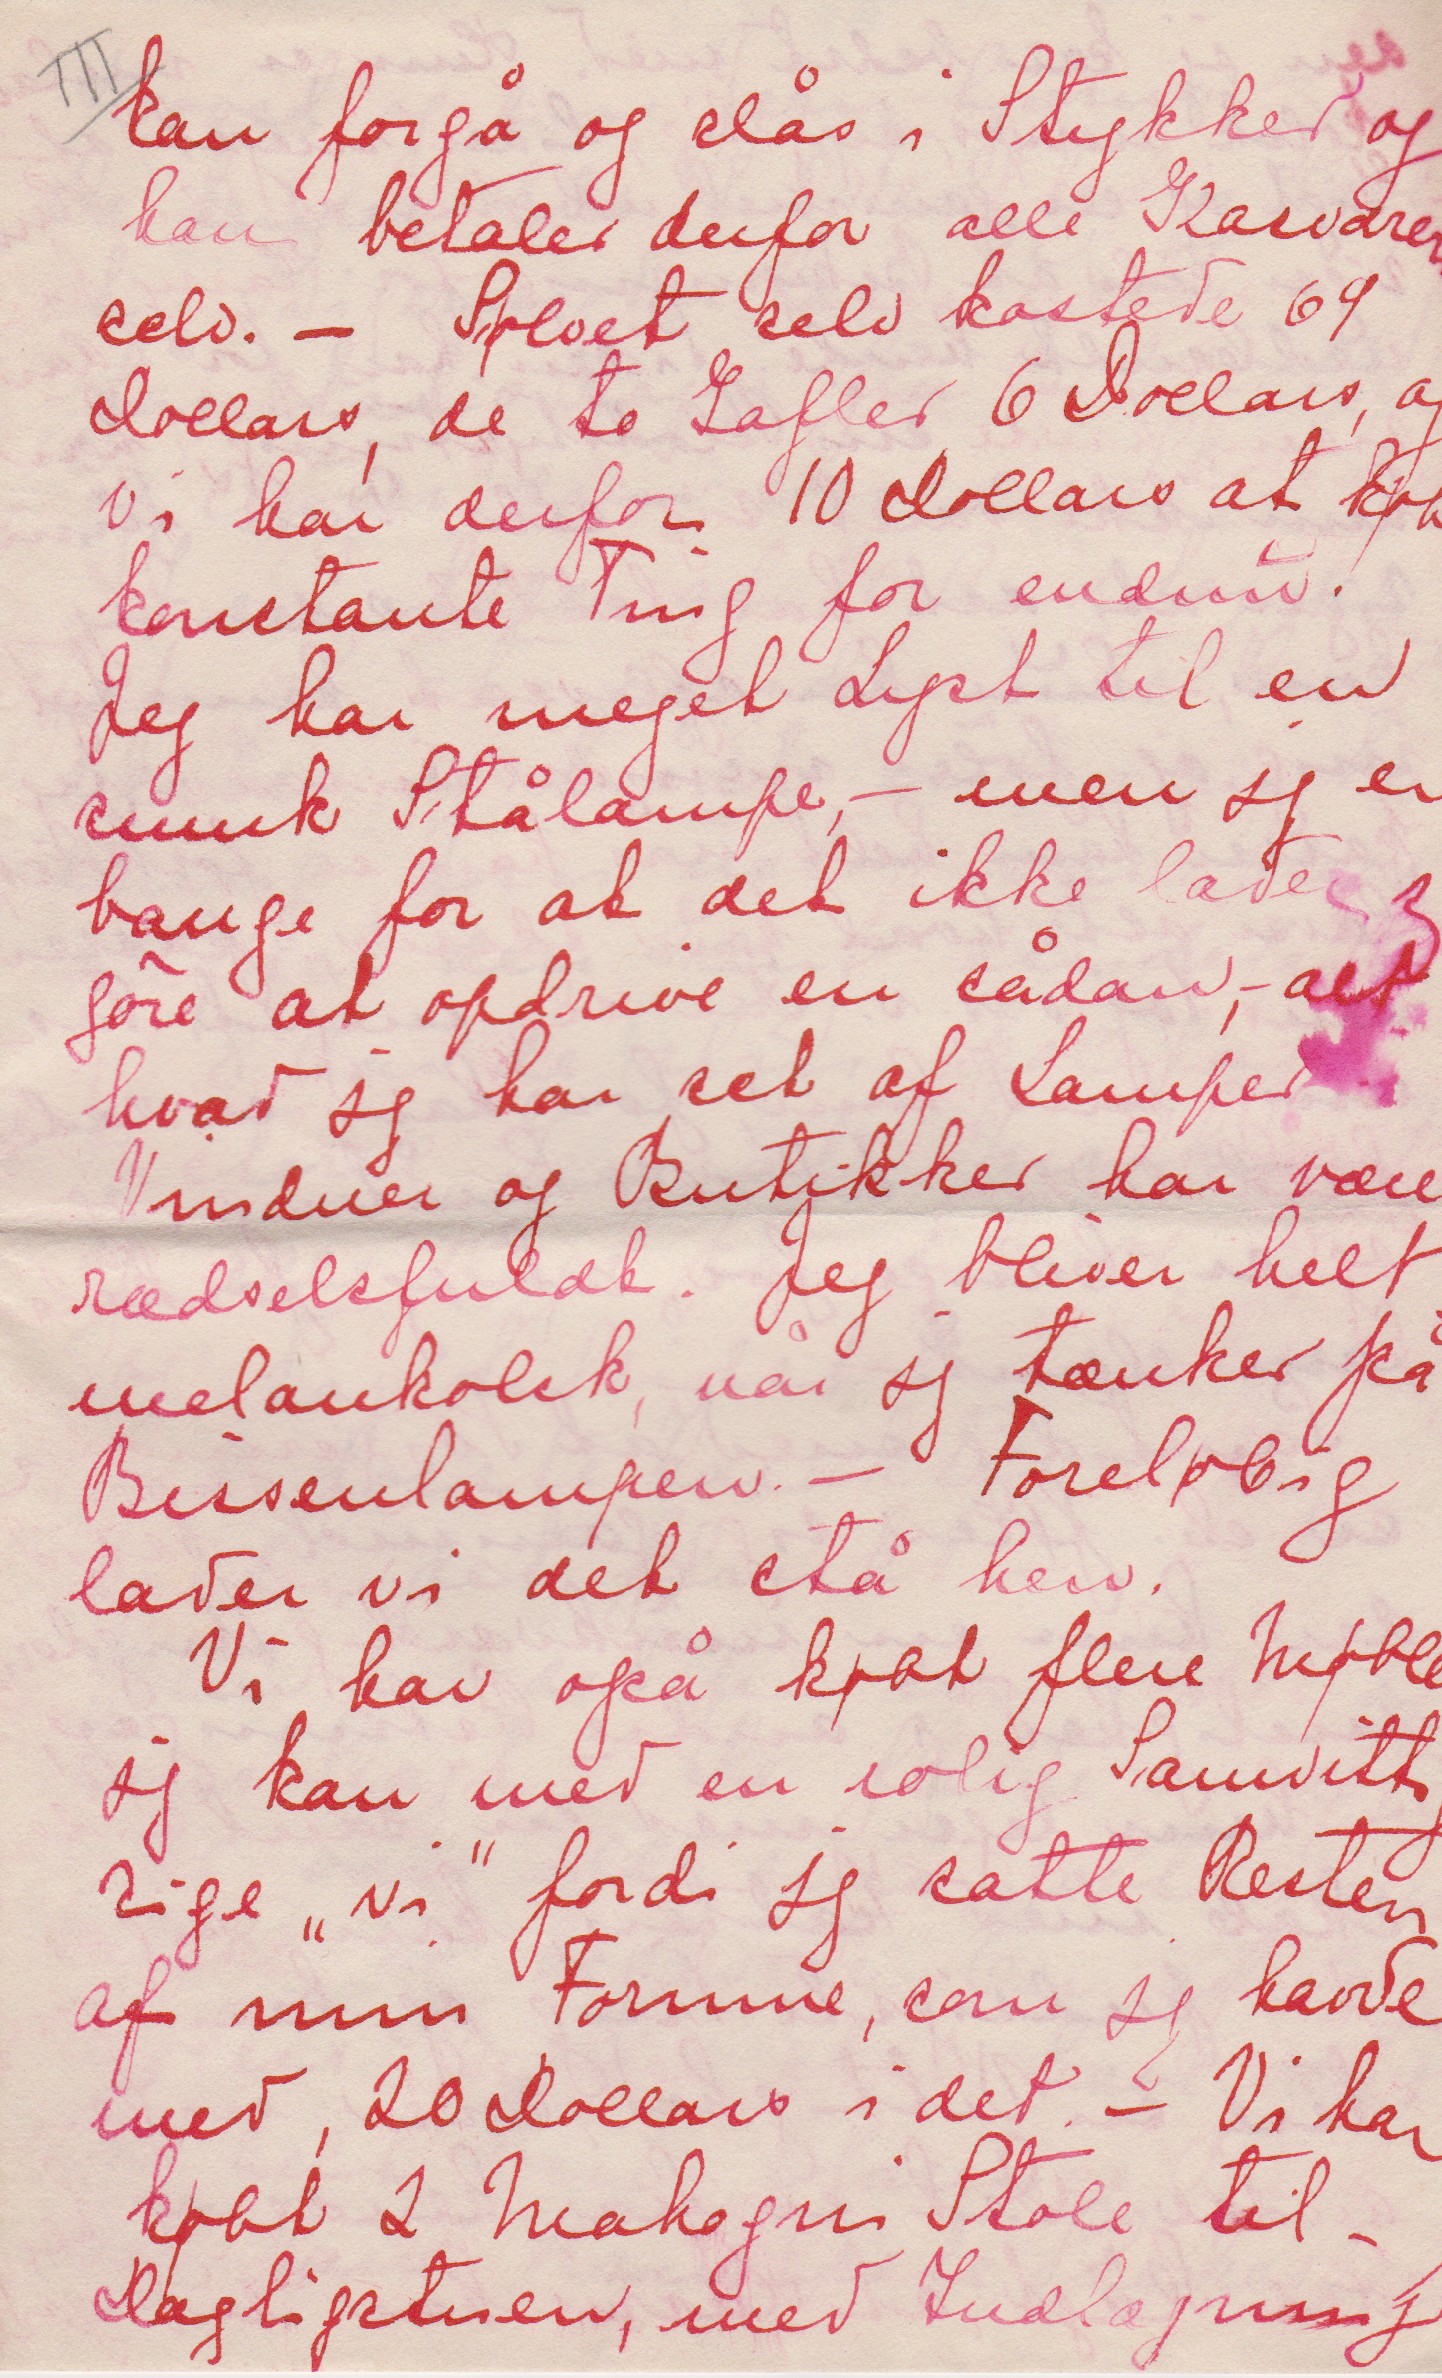 III
kan forgå og slås i Stykker og
han betaler derfor alle Glasvarer
selv. – Sølvet selv kostede 69
Dollars, de to Gafler 6 Dollars, og
vi har derfor 10 Dollars at køb
konstante Ting for endnu.
Jeg har meget Lyst til en
smuk Stålampe, – men jeg er
bange for at det ikke lader sig
göre at opdrive en sådan, – alt
hvad jeg har set af Lamper i
Vinduer og Butikker har være
rædselsfuldt. Jeg bliver helt
melankolsk, når jeg tænker på
Bissenlampen. – Foreløbig
lader vi det stå hen.
Vi har også købt flere Møble
jeg kan med en rolig Samvitt
sige „vi" fordi jeg satte Resten
af min Formue, som jeg havde
med, 20 Dollars i det. – Vi har
købt 2 Mahogni Stole til
Dagligstuen, med Indlægning